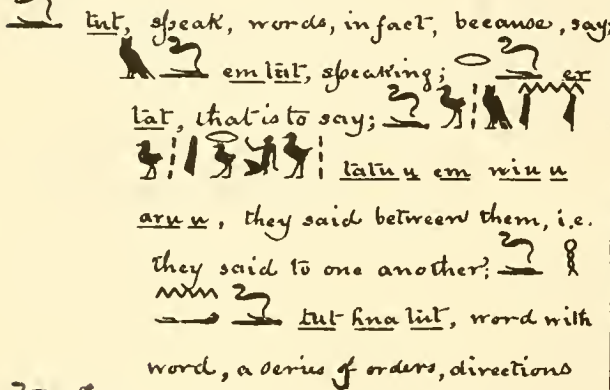 tut, speak, words, in fact, because, say;
em tut, speaking; er
tat, that is to say;
tatu u em niu u
aru u, they said between them, i.e.
they said to one another;
tut hna tut, word with
word, a series of orders, directions